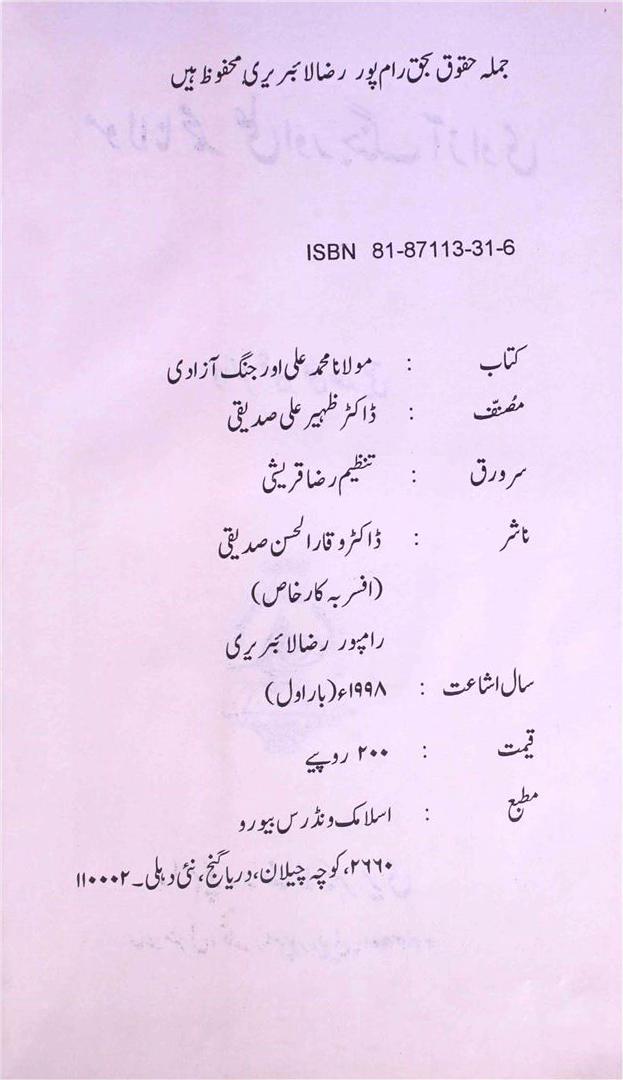 جملہ حقوق بحق رام پور رضا لائبریری محفوظ ہیں
ISBN 81-87113-31-6
کتاب : مولانا محمد علی اور جنگ آزادی
مُصنّف : ڈاکٹر ظہیر علی صدیقی
سرورق : تنظیم رضا قریشی
ناشر : ڈاکٹر وقار الحسن صدیقی
(افسر بہ کار خاص)
رامپور رضا لائبریری
سال اشاعت : ۱۹۹۸ء (بار اول)
قیمت : ۲۰۰ روپے
مطبع : اسلامک ونڈرس بیورو
۲۶۶۰، کوچہ چیلان، دریا گنج، نئی دہلی۔ ۱۱۰۰۰۲